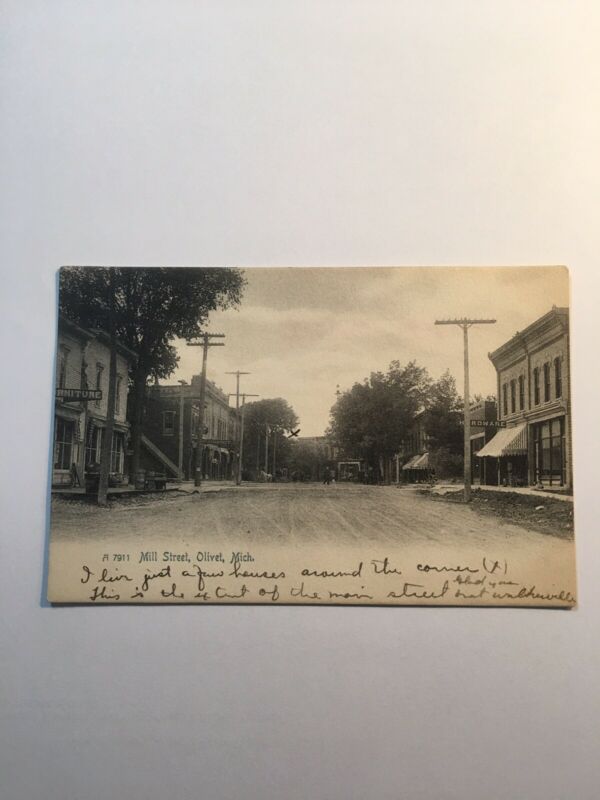 RNITURE
RDWARE
x
A 7911 Mill Street, Olivet, Mich.
I live just a few houses around the corner (X)
Glad you
This is the extent of the main street not